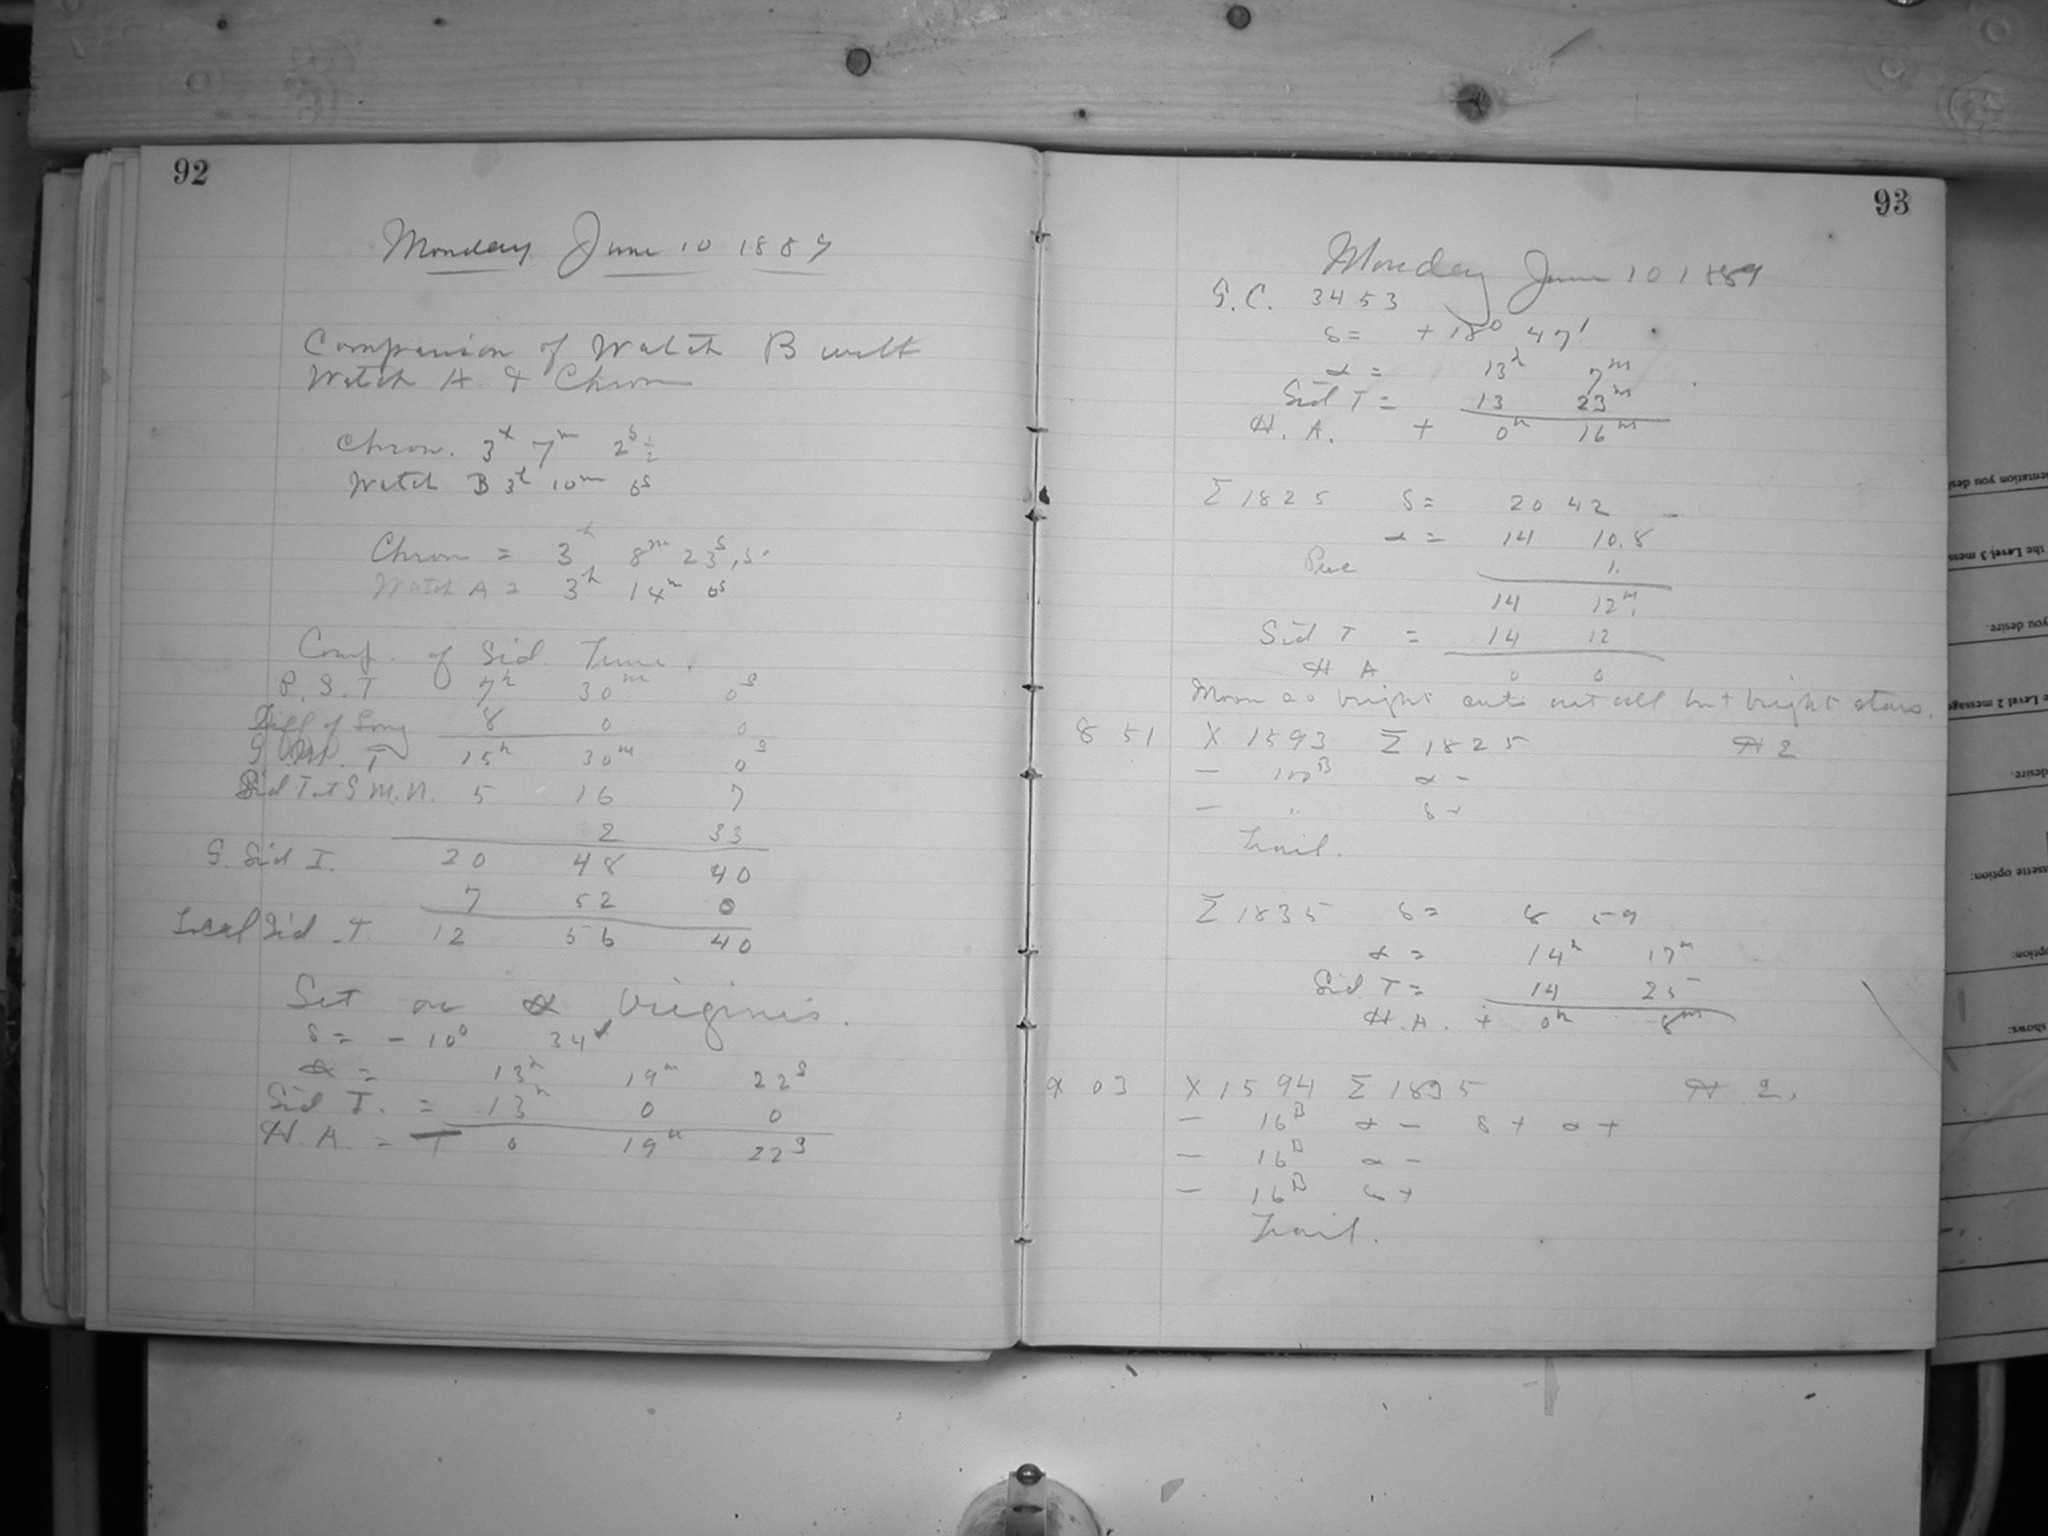 92
Monday June 10 1889
Comparison of Watch B with
Watch A & Chron
Chron. 3h 7m 2s ½
Watch B 3h 10m 0s
Chron = 3h 8m 23s,5
Watch A = 3h 14m 0s
Comp. of Sid. Time.
P. S. T 7h 30m 0s
Diff of Long 8 0 0
G. M. T 15h 30m 0s
Sid T at G M. N. 5 16 7
2 33
G. Sid T. 20 48 40
7 52 0
Local Sid T. 12 56 40
Set on α Virginis.
δ = - 10° 34'
α = 13h 19m 22s
Sid T. = 13h 0 0
H. A. = 0 19m 22s
93
Monday June 10 1889
G. C. 3453
δ = + 18° 47'
α = 13h 7m
Sid T = 13 23m
H. A. + 0h 16m
Σ 1825 δ = 20 42
α = 14 10.8
Prec 1.
14 12m
Sid T = 14 12
H A 0 0
Moon so bright cuts out all but bright stars.
8 51 X 1593 Σ 1825 H 2
- 110B α -
- " δ +
Trail.
Σ 1835 δ = 8 59
α = 14h 17m
Sid T = 14 25
H. A. + 0h 8m
9 03 X 1594 Σ 1835 H 2.
- 16B α - δ + α +
- 16B α -
- 16B δ +
Trail.